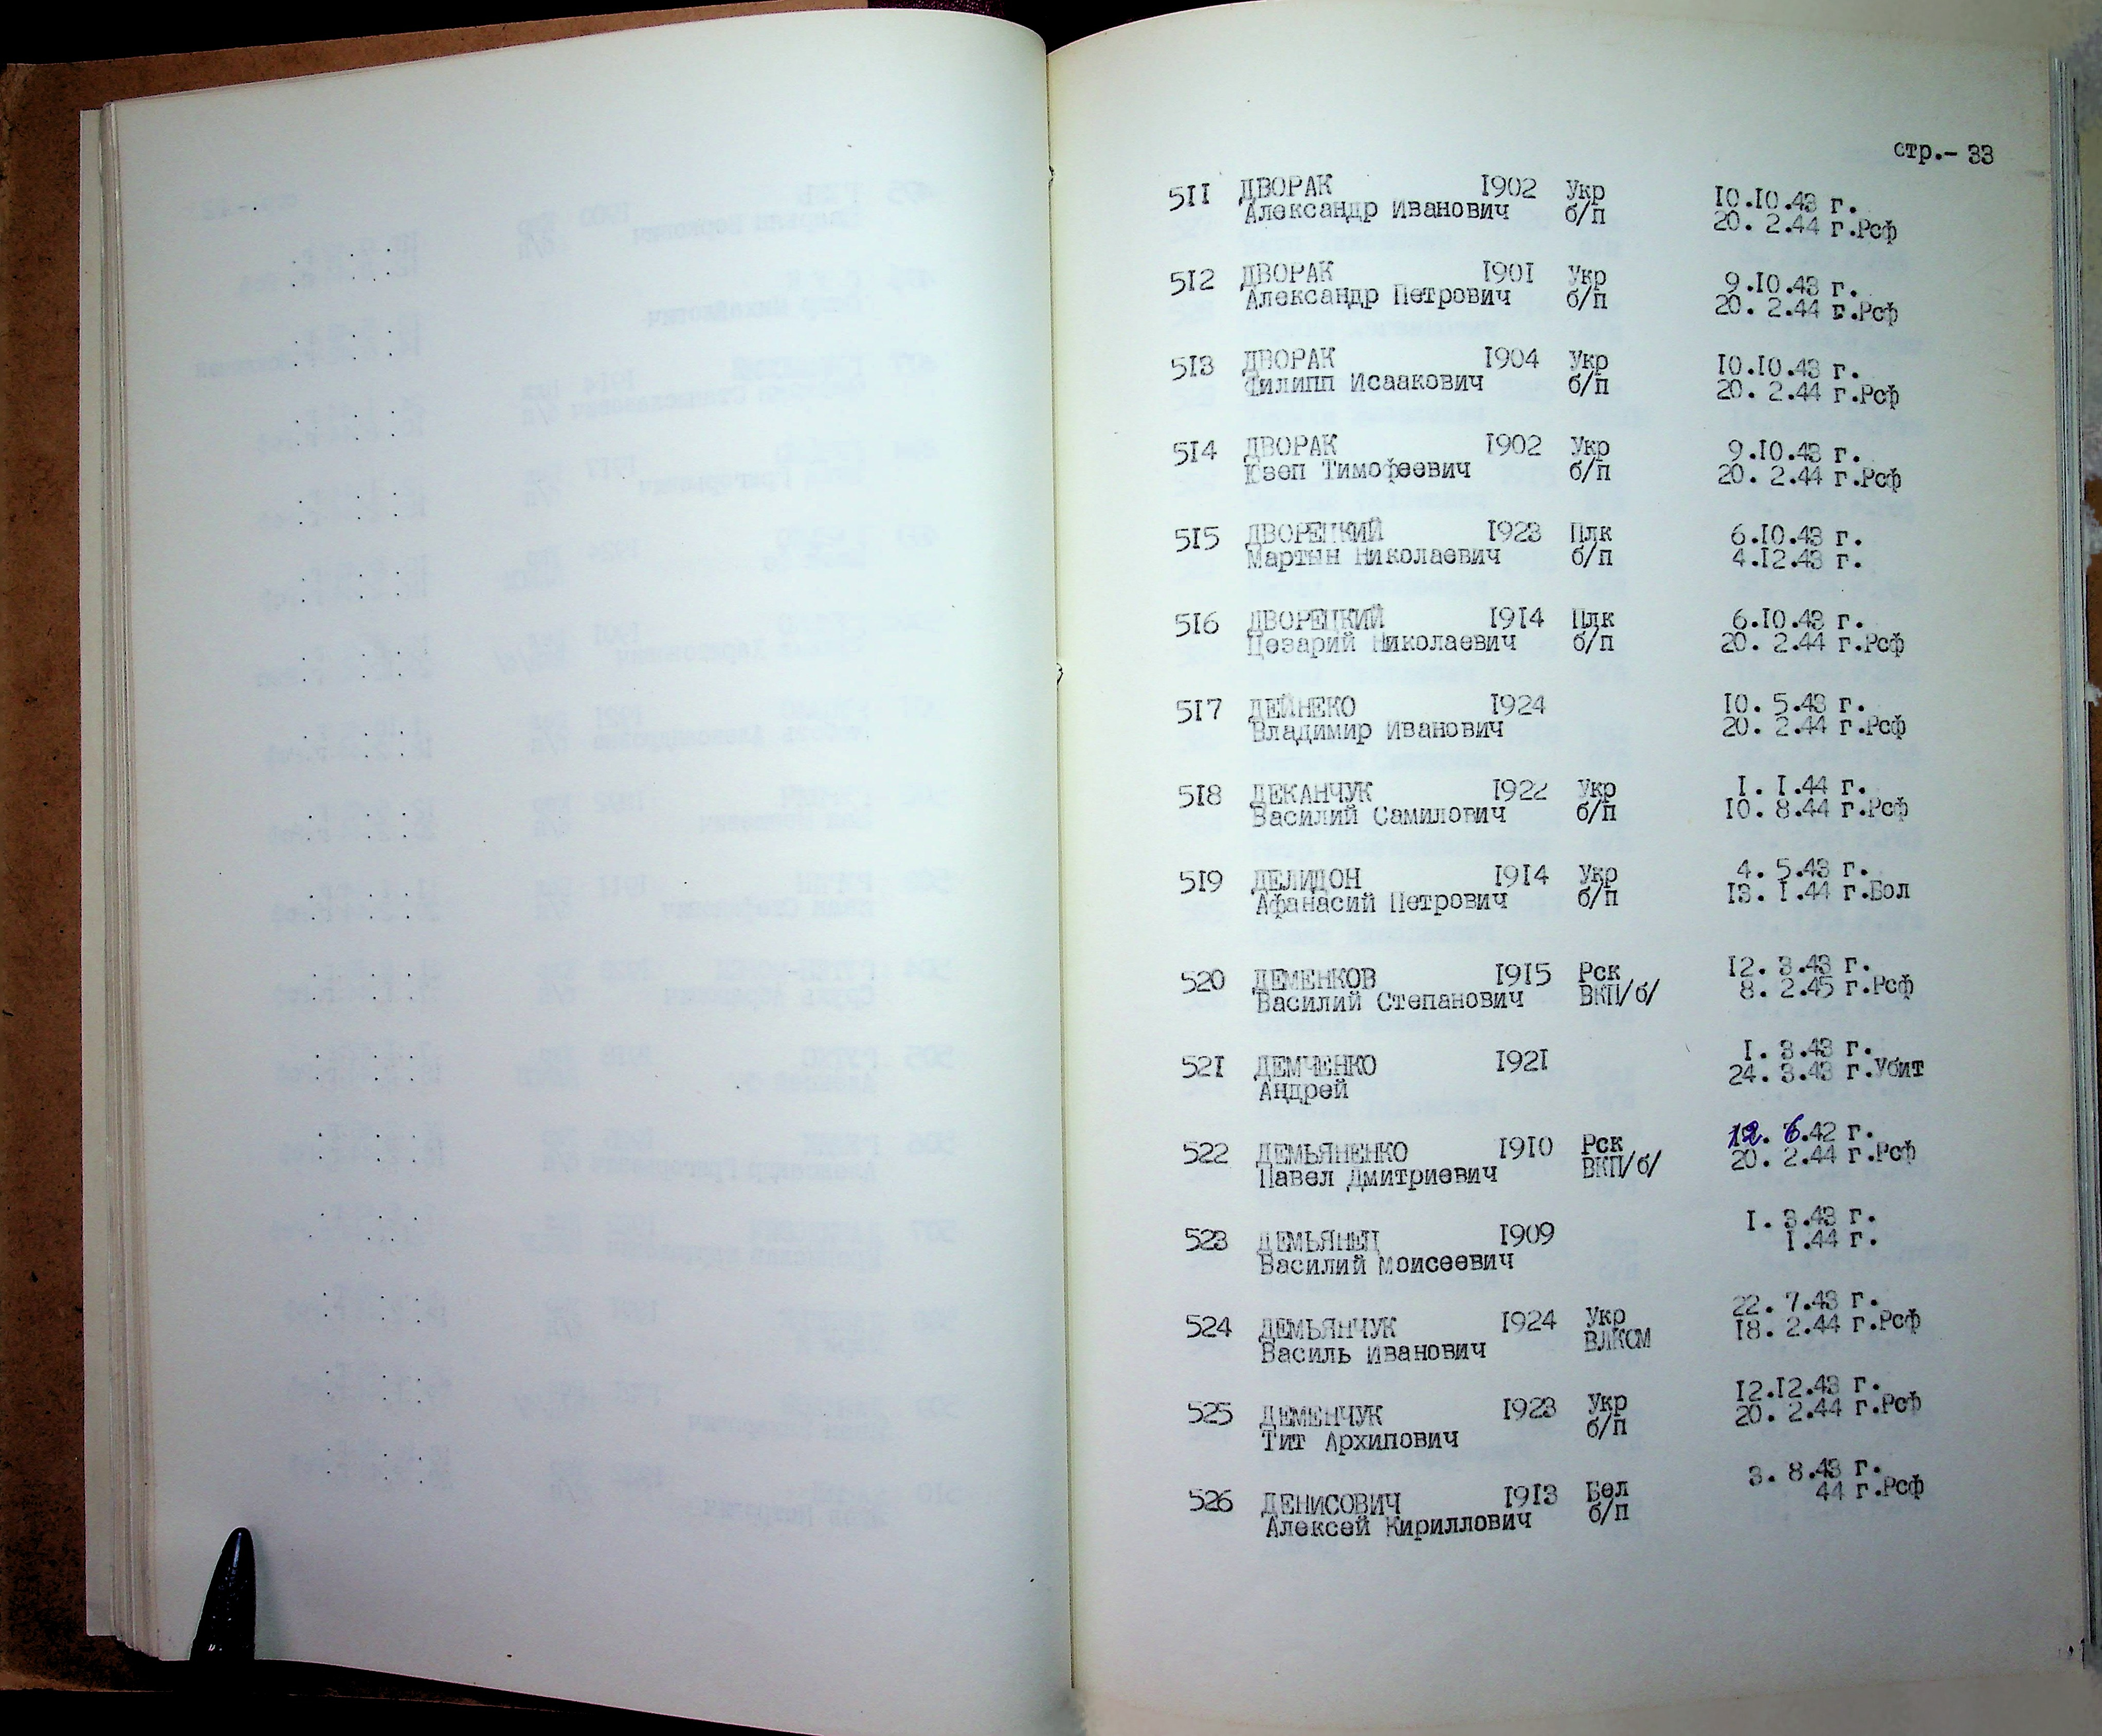 стр.- 33
511 ДВОРАК 1902 Укр 10.10.43 г.
Александр Иванович б/п 20. 2.44 г.Рсф
512 ДВОРАК 1901 Укр 9.10.43 г.
Александр Петрович б/п 20. 2.44 г.Рсф
513 ДВОРАК 1904 Укр 10.10.43 г.
Филипп Исаакович б/п 20. 2.44 г.Рсф
514 ДВОРАК 1902 Укр 9.10.43 г.
Юзеп Тимофеевич б/п 20. 2.44 г.Рсф
515 ДВОРЕЦКИЙ 1923 Плк 6.10.43 г.
Мартын Николаевич б/п 4.12.43 г.
516 ДВОРЕЦКИЙ 1914 Плк 6.10.43 г.
Цезарий Николаевич б/п 20. 2.44 г.Рсф
517 ДЕЙНЕКО 1924 10. 5.43 г.
Владимир Иванович 20. 2.44 г.Рсф
518 ДЕКАНЧУК 1922 Укр 1. 1.44 г.
Василий Самилович б/п 10. 8.44 г.Рсф
519 ДЕЛИДОН 1914 Укр 4. 5.43 г.
Афанасий Петрович б/п 13. 1.44 г.Бол
520 ДЕМЕНКОВ 1915 Рск 12. 3.43 г.
Василий Степанович ВКП/б/ 8. 2.45 г.Рсф
521 ДЕМЧЕНКО 1921 1. 3.43 г.
Андрей 24. 3.43 г.Убит
522 ДЕМЬЯНЕНКО 1910 Рск 12. 6.42 г.
Павел Дмитриевич ВКП/б/ 20. 2.44 г.Рсф
523 ДЕМЬЯНЕЦ 1909 1. 3.43 г.
Василий Моисеевич 1.44 г.
524 ДЕМЬЯНЧУК 1924 Укр 22. 7.43 г.
Василь Иванович ВЛКСМ 18. 2.44 г.Рсф
525 ДЕМЕНЧУК 1923 Укр 12.12.43 г.
Тит Архипович б/п 20. 2.44 г.Рсф
526 ДЕНИСОВИЧ 1913 Бел 3. 8.43 г.
Алексей Кириллович б/п 44 г.Рсф